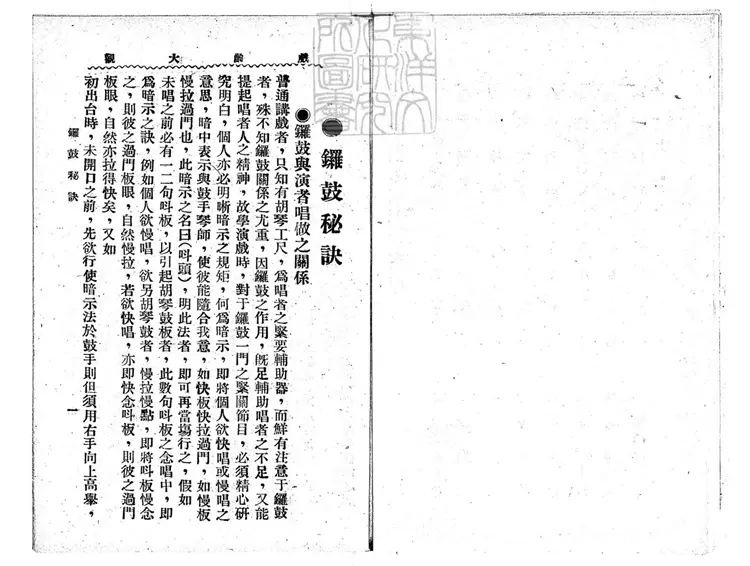 戲齣大觀
●鑼鼓秘訣
●鑼鼓與演者唱做之關係
普通講戲者，只知有胡琴工尺，爲唱者之緊要輔助器，而鮮有注意于鑼鼓
者，殊不知鑼鼓關係之尤重，因鑼鼓之作用，旣足輔助唱者之不足，又能
提起唱者人之精神，故學演戲時，對于鑼鼓一門之緊關節目，必須精心研
究明白，個人亦必明晰暗示之規矩，何爲暗示，即將個人欲快唱或慢唱之
意思，暗中表示與鼓手琴師，使彼能隨合我意，如快板快拉過門，如慢板
慢拉過門也，此暗示之名曰（呌頭），明此法者，即可再當塲行之，假如
未唱之前必有一二句呌板，以引起胡琴鼓板者，此數句呌板之念唱中，即
爲暗示之訣，例如個人欲慢唱，欲另胡琴鼓者，慢拉慢點，即將呌板慢念
之，則彼之過門板眼，自然慢拉，若欲快唱，亦即快念呌板，則彼之過門
板眼，自然亦拉得快矣，又如
初出台時，未開口之前，先欲行使暗示法於鼓手則但須用右手向上高擧，
鑼鼓秘訣
一